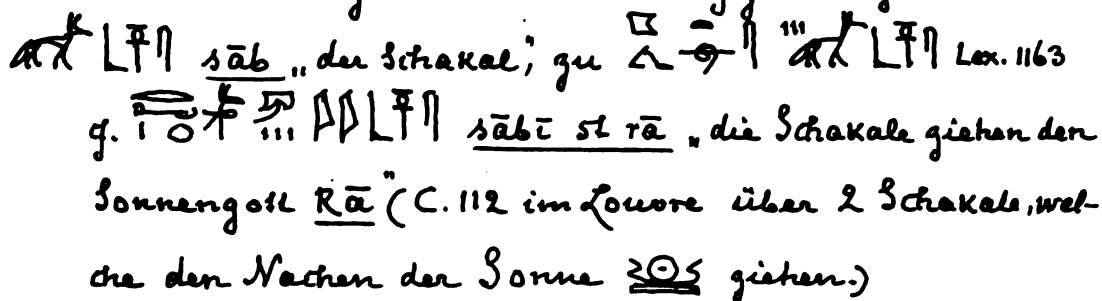 sāb „der Schakal“, zu Lex. 1163
g. sābī st rā „die Schakale ziehen den
Sonnengott Rā“ (C. 112 im Louvre über 2 Schakale, wel-
che den Nachen der Sonne ziehen.)